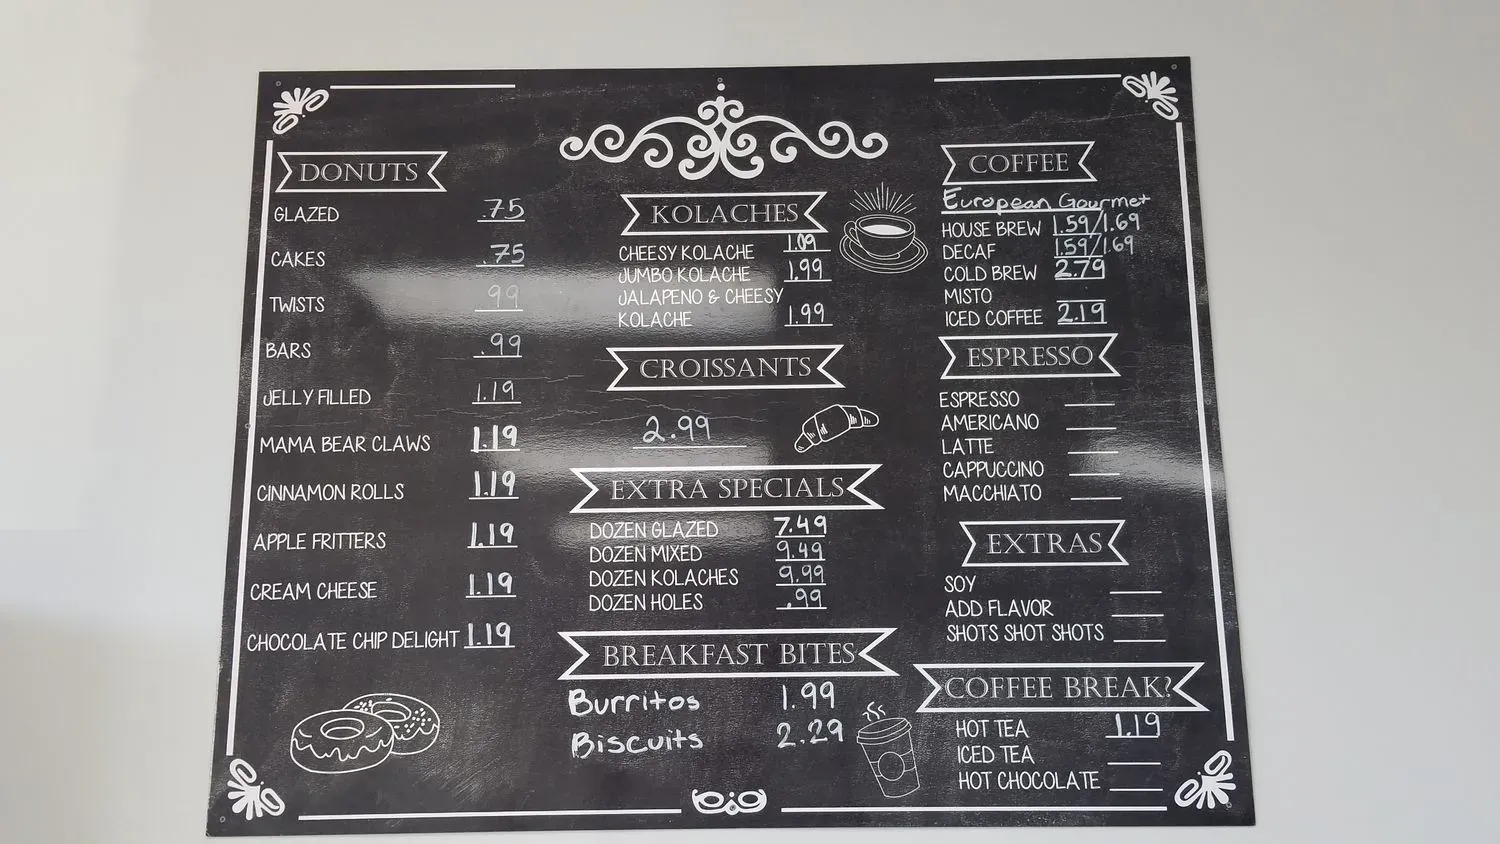 DONUTS
GLAZED .75
CAKES .75
TWISTS .99
BARS .99
JELLY FILLED 1.19
MAMA BEAR CLAWS 1.19
CINNAMON ROLLS 1.19
APPLE FRITTERS 1.19
CREAM CHEESE 1.19
CHOCOLATE CHIP DELIGHT 1.19
KOLACHES
CHEESY KOLACHE 1.09
JUMBO KOLACHE 1.99
JALAPENO & CHEESY
KOLACHE 1.99
CROISSANTS
2.99
EXTRA SPECIALS
DOZEN GLAZED 7.49
DOZEN MIXED 9.49
DOZEN KOLACHES 9.99
DOZEN HOLES .99
BREAKFAST BITES
Burritos 1.99
Biscuits 2.29
COFFEE
European Gourmet
HOUSE BREW 1.59/1.69
DECAF 1.59/1.69
COLD BREW 2.79
MISTO
ICED COFFEE 2.19
ESPRESSO
ESPRESSO
AMERICANO
LATTE
CAPPUCCINO
MACCHIATO
EXTRAS
SOY
ADD FLAVOR
SHOTS SHOT SHOTS
COFFEE BREAK?
HOT TEA 1.19
ICED TEA
HOT CHOCOLATE